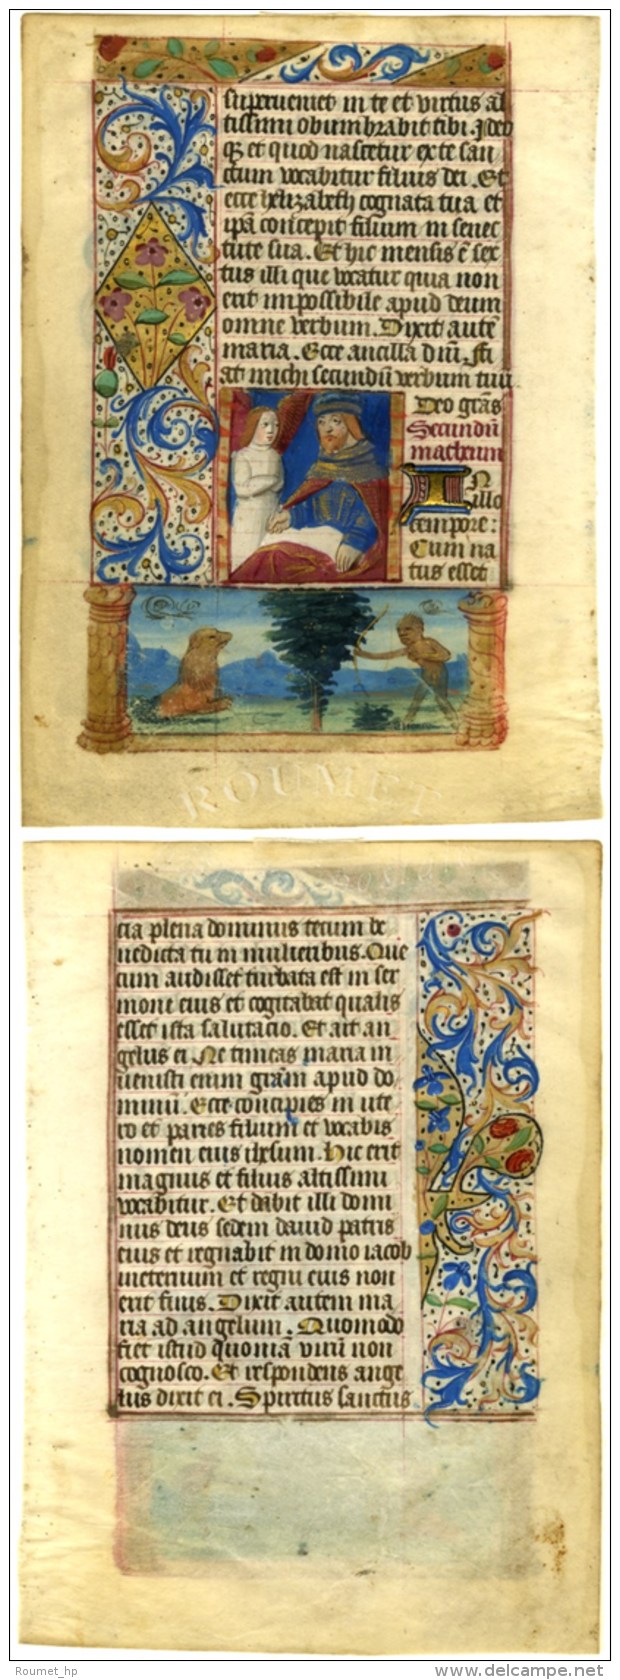 superueniet in te et virtus al
tissimi obumbrabit tibi. Ideo
qȝ et quod nascetur ex te san
ctum vocabitur filius dei. Et
ecce helizabeth cognata tua et
ip̄a concepit filium in senec
tute sua. Et hic mensis ē sex
tus illi que vocatur quia non
erit impossibile apud deum
omne verbum. Dixit autē
maria. Ecce ancilla dn̄i. Fi
at michi secundū verbum tuū
Deo gr̄as
Secundū
matheum
IN
illo
tempore:
Cum na
tus esset
ROUMET
cia plena dominus tecum be
nedicta tu in mulieribus. Que
cum audisset turbata est in ser
mone eius et cogitabat qualis
esset ista salutacio. Et ait an
gelus ei. Ne timeas maria in
uenisti enim grām apud do
minū. Ecce concipies in ute
ro et paries filium et vocabis
nomen eius ihesum. Hic erit
magnus et filius altissimi
vocabitur. Et dabit illi domi
nus deus sedem dauid patris
eius et regnabit in domo iacob
ineternum et regni eius non
erit finis. Dixit autem ma
ria ad angelum. Quomodo
fiet istud quoniā virū non
cognosco. Et respondens ange
lus dixit ei. Spiritus sanctus
Roumet_hp
www.delcampe.net